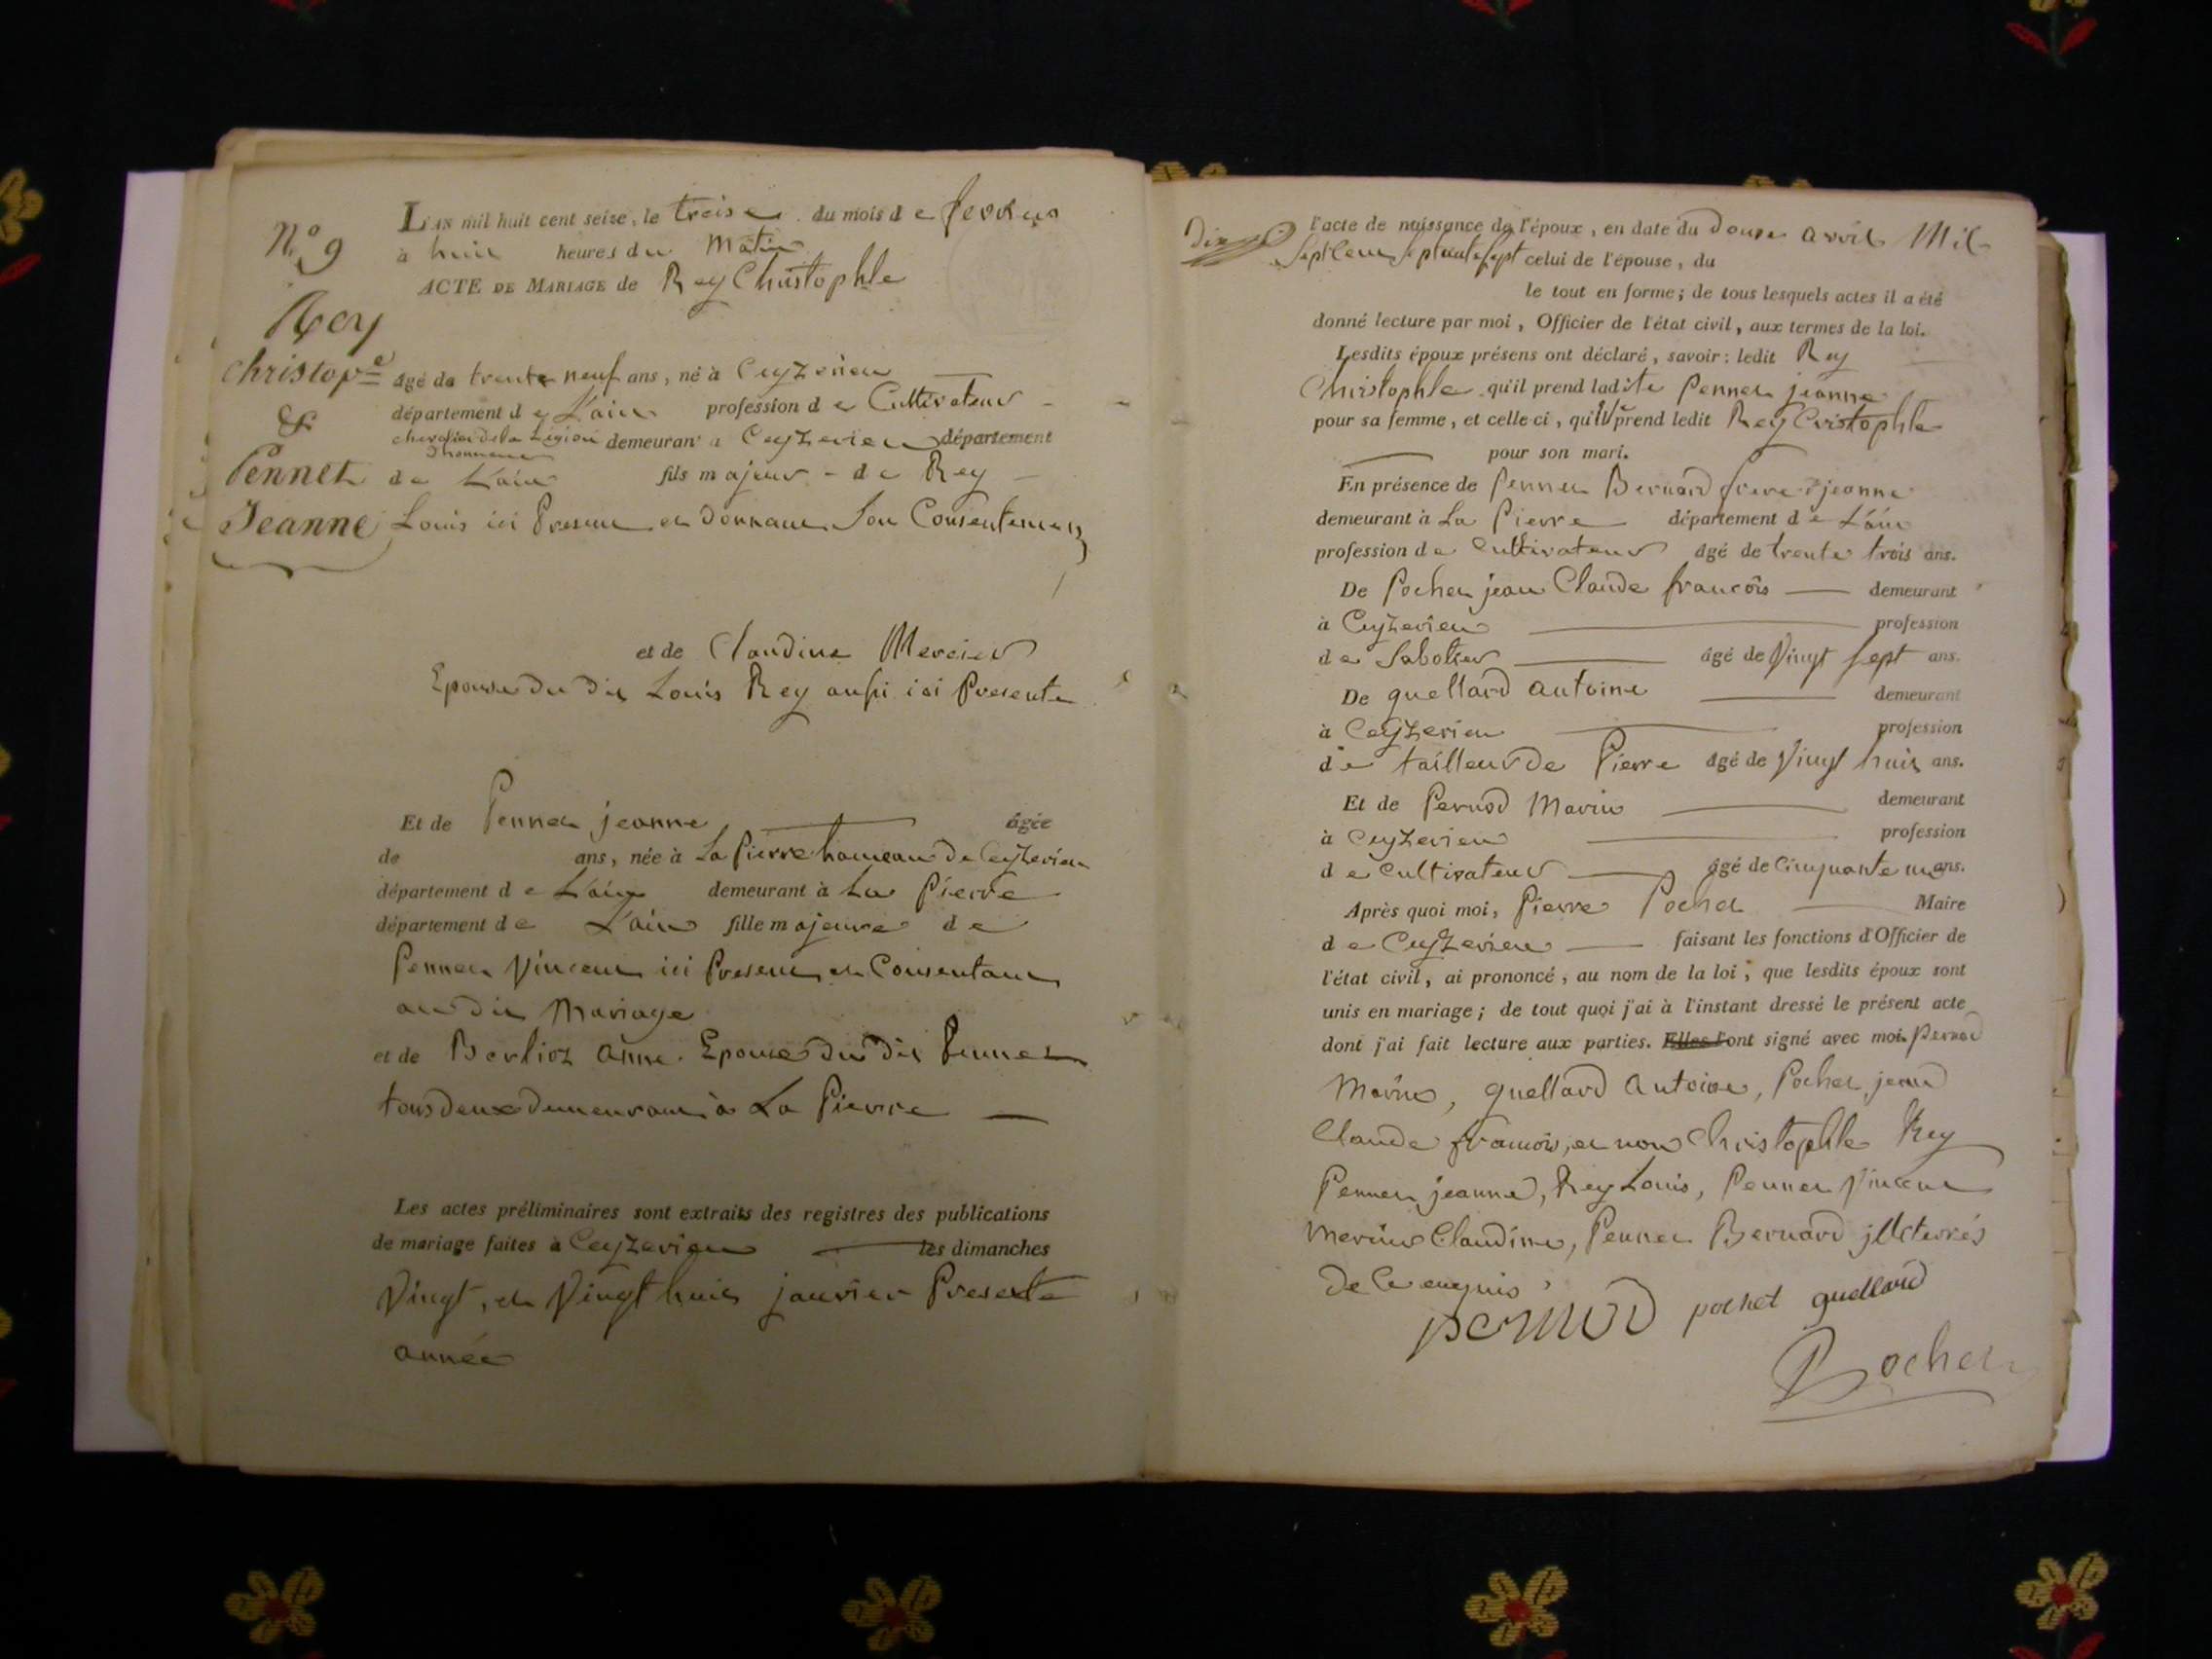 N.° 9
L'AN mil huit cent seize, le treise du mois de fevrier
à huit heures du Matin
ACTE DE MARIAGE de Rey Christophle
Rey
Christop.e
&
Pennet
Jeanne
âgé de trente neuf ans, né à Ceyzerieu
département de L'ain profession de Cultivateur
chevalier de la Légion d'honneur demeurant à Ceyzerieu département
de L'ain fils majeur de Rey
Louis ici Present et donnant Son Consentement
et de Claudine Mercier
Epouse du dit Louis Rey aussi ici Presente
Et de Pennet jeanne âgée
de ans, née à La Pierre hameau de Ceyzerieu
département de L'ain demeurant à La Pierre
département de L'ain fille majeure de
Pennet Vincent ici Present et Consentant
au dit Mariage
et de Berlioz anne. Epouse du dit Pennet
tous deux demeurant à La Pierre
Les actes préliminaires sont extraits des registres des publications
de mariage faites à Ceyzerieu les dimanches
Vingt, et Vingt huit janvier Presente
année
Dix
l'acte de naissance de l'époux, en date du douze avril Mil
Sept Cent Septante Sept celui de l'épouse, du
le tout en forme; de tous lesquels actes il a été
donné lecture par moi, Officier de l'état civil, aux termes de la loi.
Lesdits époux présens ont déclaré, savoir: ledit Rey
Christophle qu'il prend ladite Pennet jeanne
pour sa femme, et celle-ci, qu'il prend ledit Rey Cristophle
pour son mari.
En présence de Pennet Bernard frere a jeanne
demeurant à La Pierre département de L'ain
profession de Cultivateur âgé de trente trois ans.
De Pochet jean Claude francois demeurant
à Ceyzerieu profession
de Sabotier âgé de Vingt Sept ans.
De quellard antoine demeurant
à Ceyzerieu profession
de tailleur de Pierre âgé de Vingt huit ans.
Et de Pernod Marin demeurant
à Ceyzerieu profession
de Cultivateur âgé de Cinquante ans.
Après quoi moi, Pierre Pochet Maire
de Ceyzerieu faisant les fonctions d'Officier de
l'état civil, ai prononcé, au nom de la loi, que lesdits époux sont
unis en mariage; de tout quoi j'ai à l'instant dressé le présent acte
dont j'ai fait lecture aux parties. Elles l'ont signé avec moi. Pernod
Marin, quellard Antoine, Pochet jean
Claude francois, et non Christophle Rey
Pennet jeanne, Rey Louis, Pennet Vincent
Mercier Claudine, Pennet Bernard jlliterés
de Ce enquis
pernod pochet quellard
Pochet